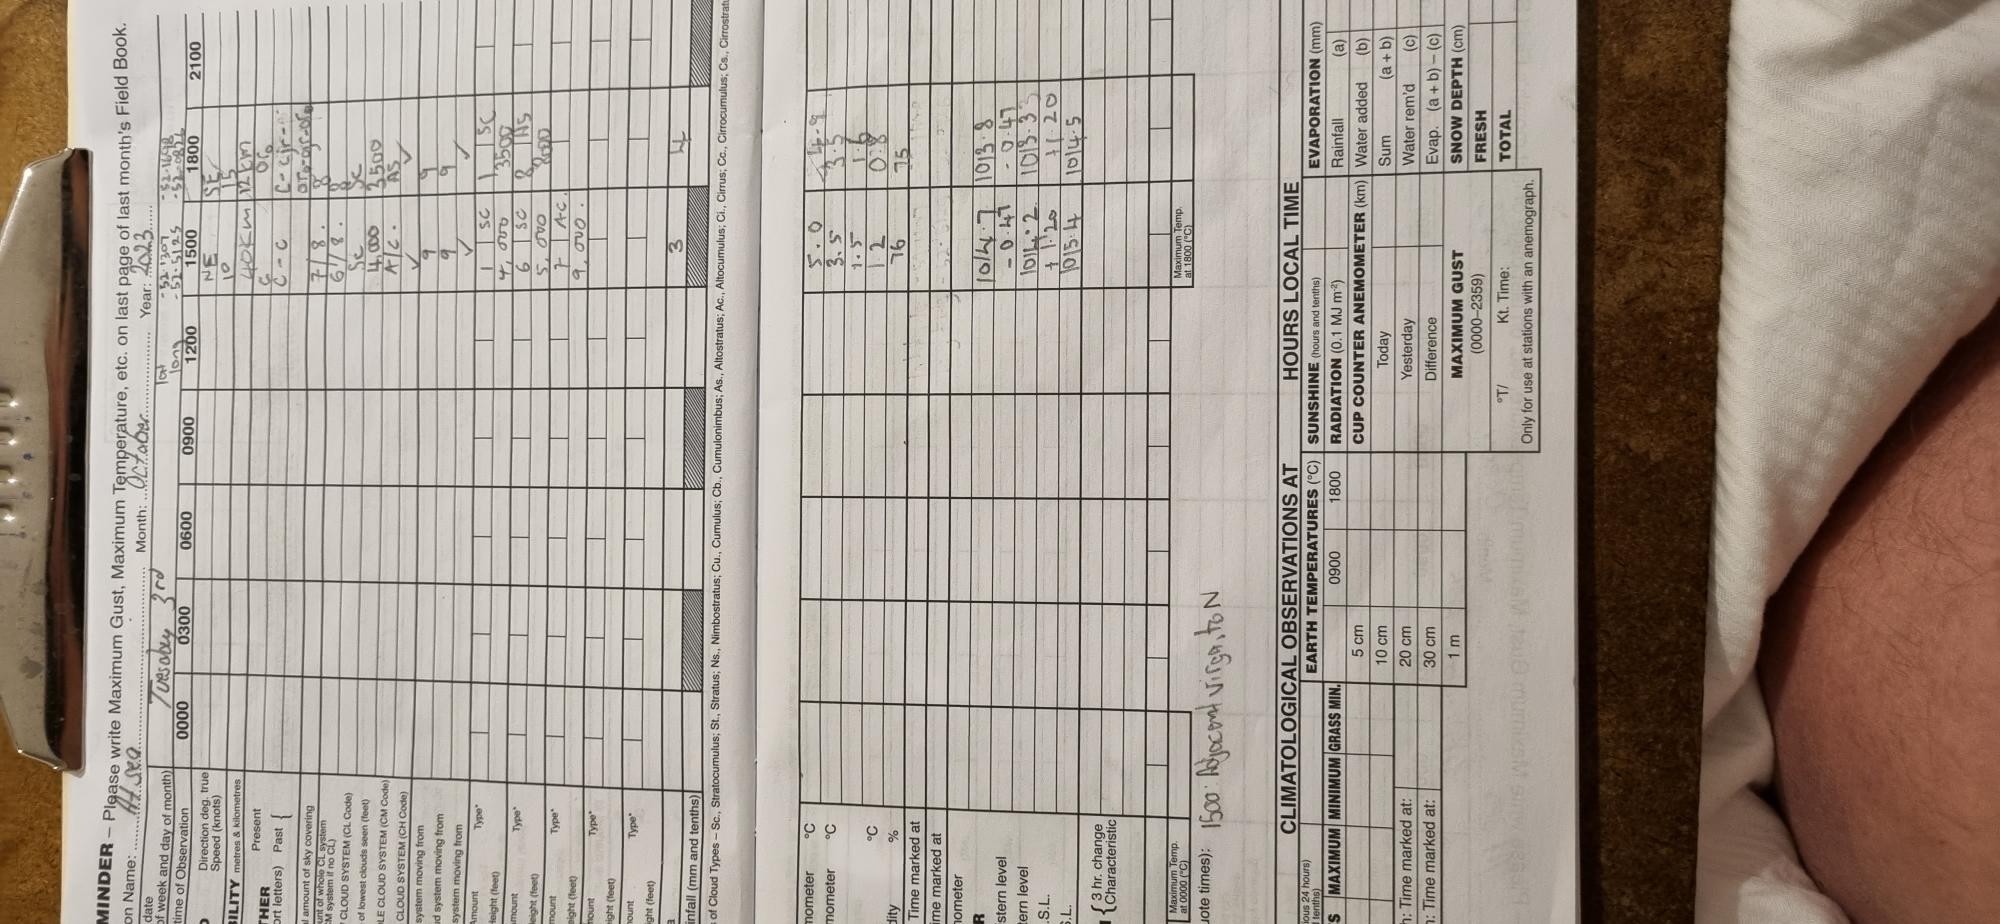 MINDER – Please write Maximum Gust, Maximum Temperature, etc. on last page of last month's Field Book.
on Name: At sea Month: October Year: 2023
date
of week and day of month) Tuesday 3rd lat long
time of Observation 0000 0300 0600 0900 1200 1500 1800 2100
Direction deg. true NE SE
Speed (knots) 10 15
BILITY metres & kilometres 40km 12km
THER Present C
rt letters) Past { C - C
l amount of sky covering 7/8. 8
unt of whole CL system
M system if no CL) 6/8. 8
CLOUD SYSTEM (CL Code) Sc Sc
of lowest clouds seen (feet) 4,000 3500
LE CLOUD SYSTEM (CM Code) A/c. AS
CLOUD SYSTEM (CH Code) ✓ ✓
system moving from 9 9
id system moving from 9 9
system moving from ✓ ✓
Amount Type* 1 SC 1 SC
eight (feet) 4,000 3500
mount Type* 6 SC 8 AS
eight (feet) 5,000
mount Type* 7 AC.
ight (feet) 9,000.
nount Type*
ight (feet)
ount Type*
ght (feet)
infall (mm and tenths) 3 4
s of Cloud Types – Sc., Stratocumulus; St., Stratus; Ns., Nimbostratus; Cu., Cumulus; Cb., Cumulonimbus; As., Altostratus; Ac., Altocumulus; Ci., Cirrus; Cc., Cirrocumulus; Cs., Cirrostrat
mometer °C 5.0 4.9
mometer °C 3.5 3.5
1.5 1.6
°C 1.2 0.8
dity % 76 75
Time marked at
ime marked at
nometer
R 1014.7 1013.8
stern level - 0.47 - 0.47
tern level 1014.2 1013.33
.S.L. + 1.20 +1.20
.L. 1015.4 1014.5
{ 3 hr. change
Characteristic
Maximum Temp. at 0000 (°C) Maximum Temp. at 1800 (°C)
uote times): 1500: Adjacent virga, to N
CLIMATOLOGICAL OBSERVATIONS AT HOURS LOCAL TIME
ious 24 hours)
tenths)
S MAXIMUM MINIMUM GRASS MIN.
n: Time marked at:
n: Time marked at:
EARTH TEMPERATURES (°C)
0900 1800
5 cm
10 cm
20 cm
30 cm
1 m
SUNSHINE (hours and tenths)
RADIATION (0.1 MJ m⁻²)
CUP COUNTER ANEMOMETER (km)
Today
Yesterday
Difference
MAXIMUM GUST
(0000–2359)
°T/ Kt. Time:
Only for use at stations with an anemograph.
EVAPORATION (mm)
Rainfall (a)
Water added (b)
Sum (a + b)
Water rem'd (c)
Evap. (a + b) – (c)
SNOW DEPTH (cm)
FRESH
TOTAL